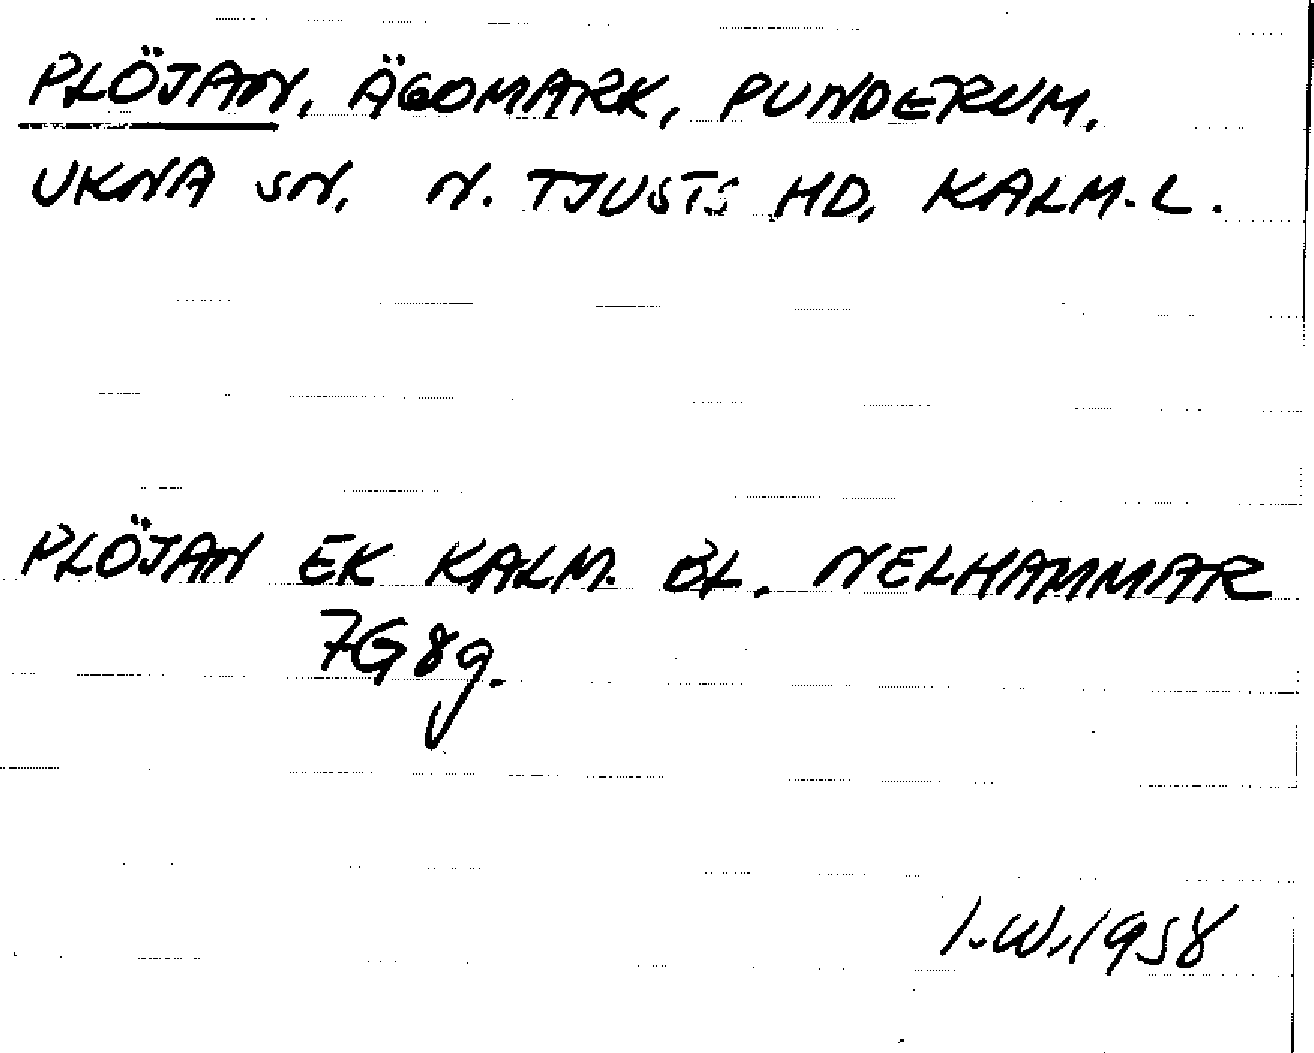 PLÖJAN, ÄGOMARK, PUNDERUM,
UKNA SN, N. TJUSTS HD, KALM. L.
PLÖJAN EK KALM. BL. NELHAMMAR
7G8g.
I.W. 1958